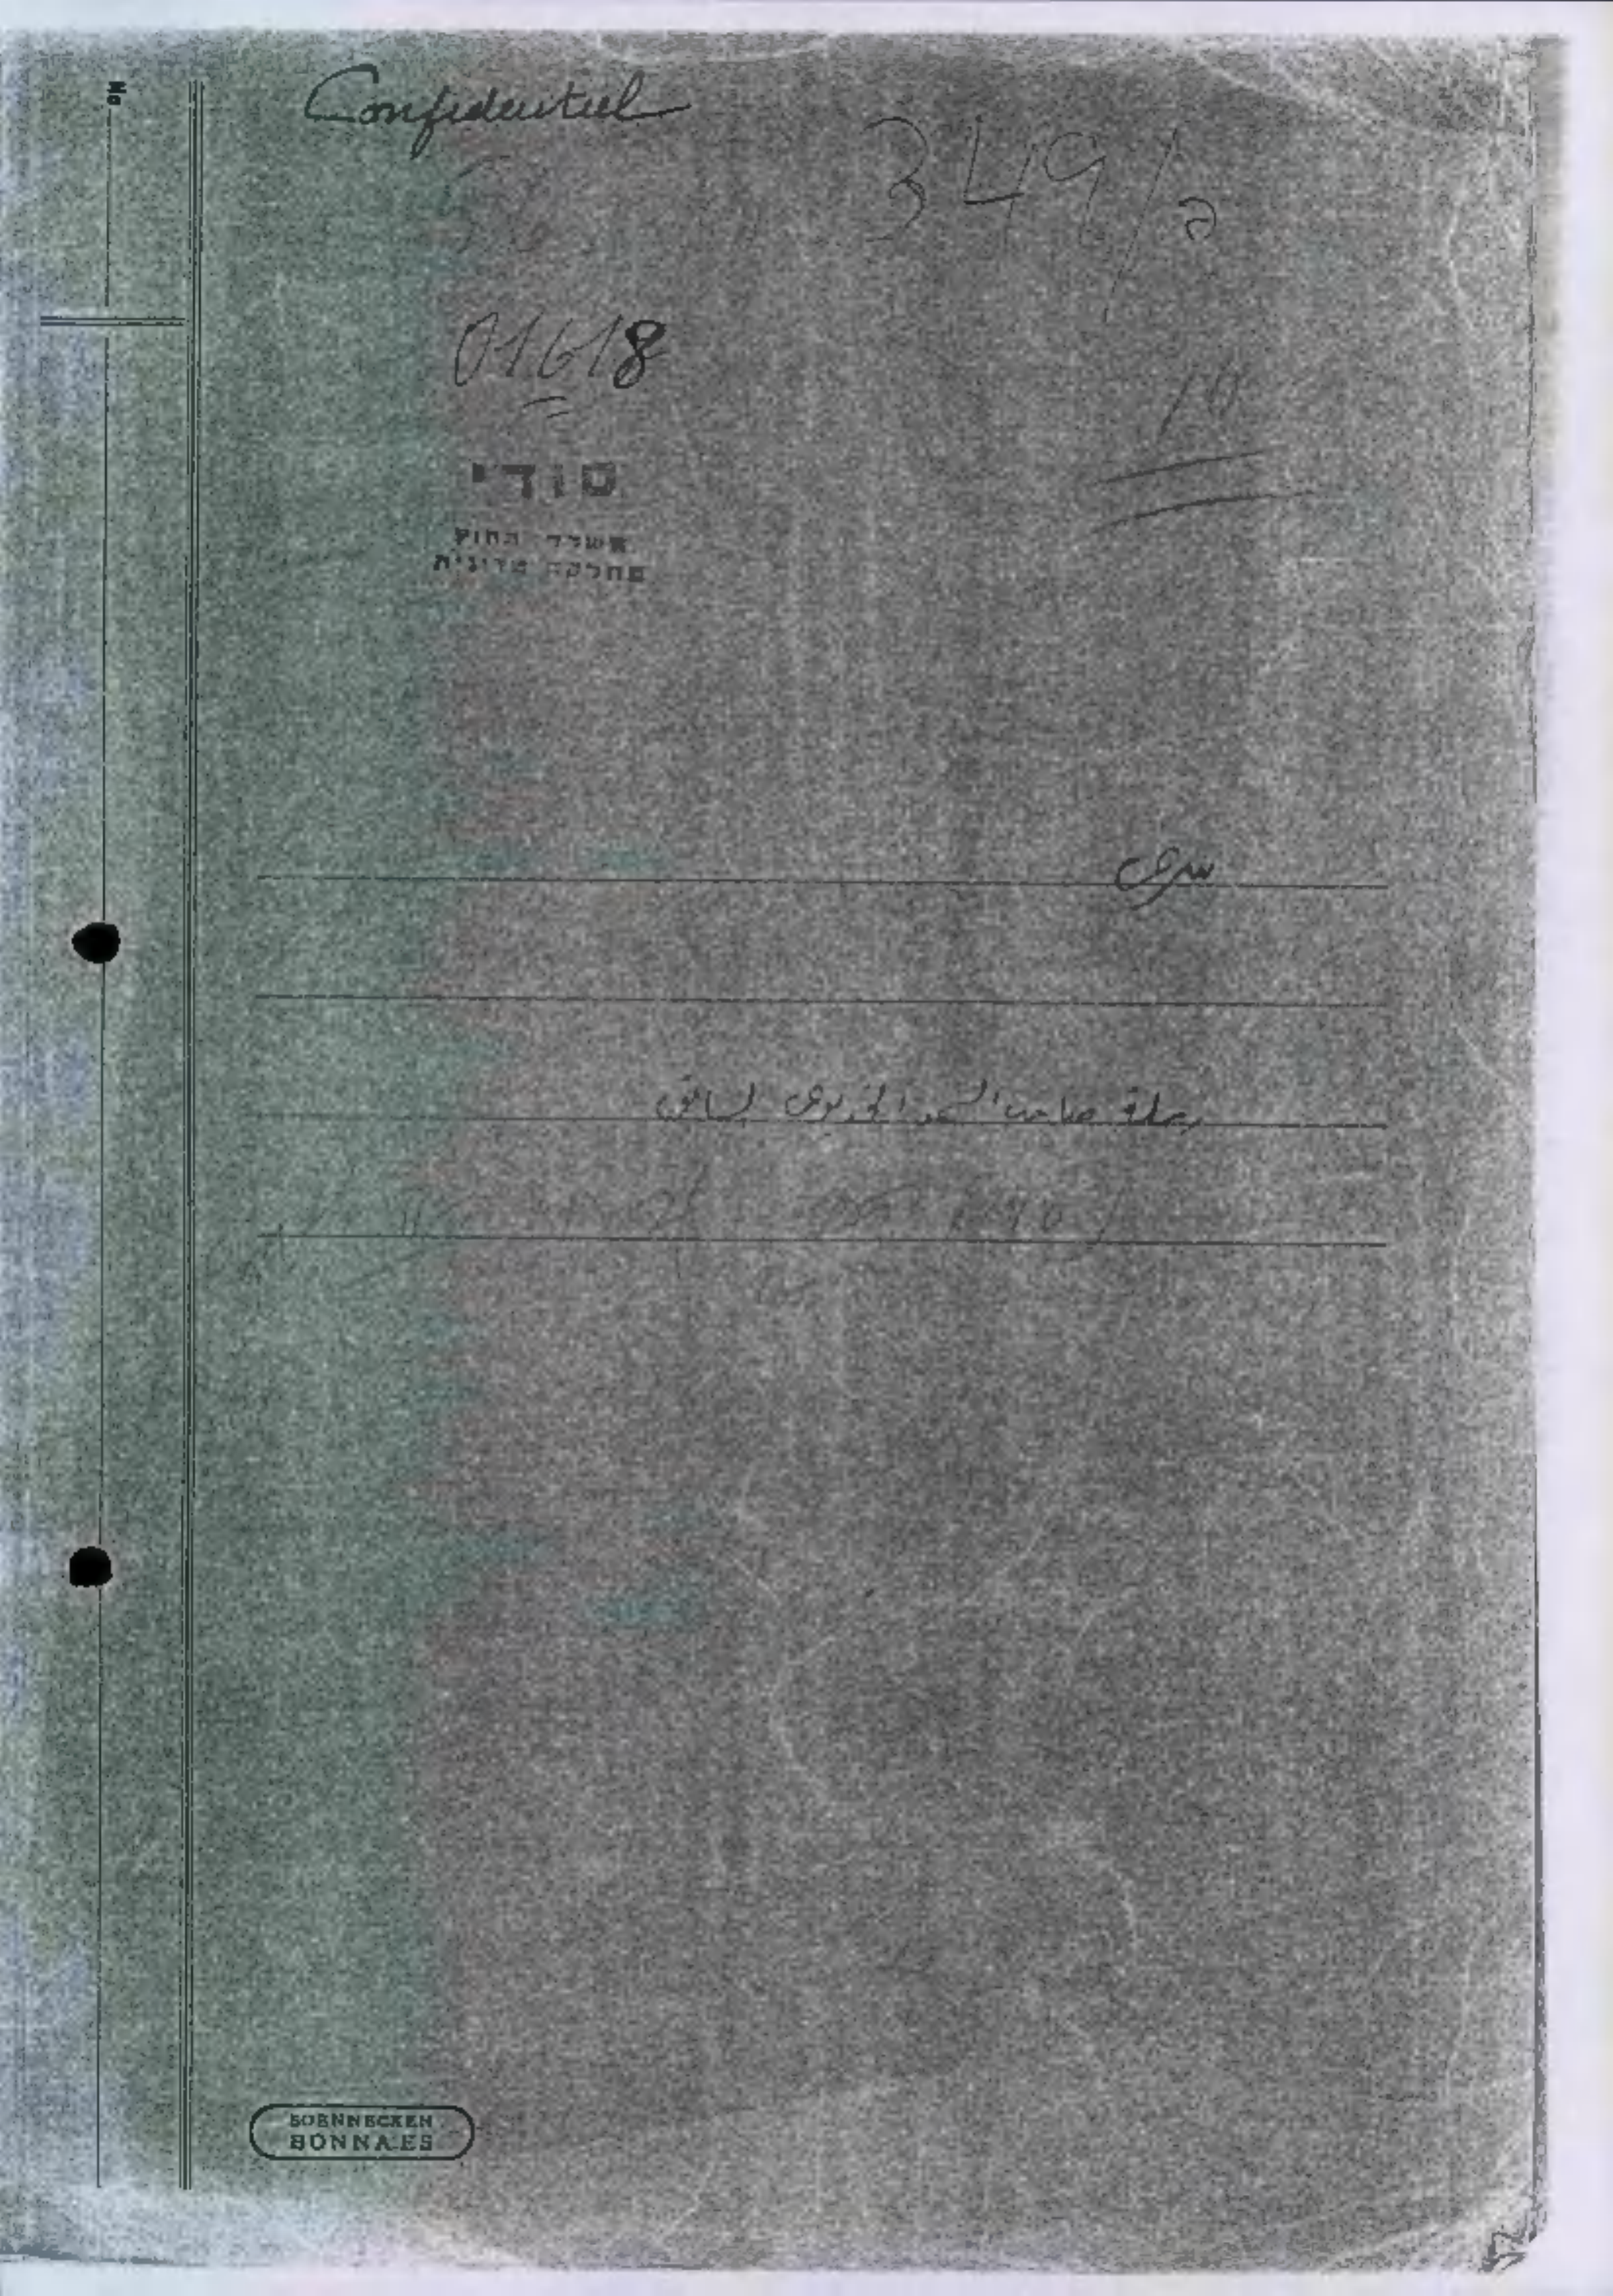 No
Confidentiel
349/2
01618
10
סודי
משרד החוץ
מחלקה מדינית
سرى
رحلة صاحب السمو الخديوى السابق
SOENNECKEN
BONNA.ES